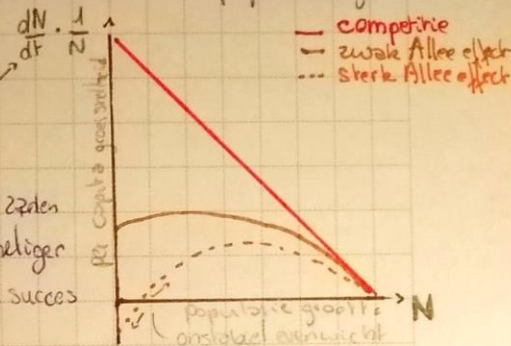 dN/dt · 1/N
— competitie
— zwak Allee effect
--- sterk Allee effect
per capita groeisnelheid
zaden
eliger
succes
N
populatie grootte
onstabiel evenwicht